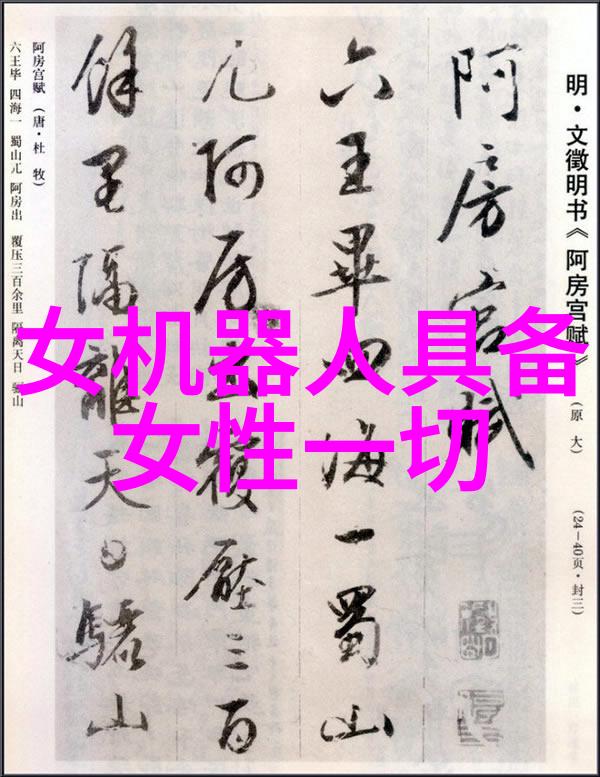 女机器人具备
女性一切
明·文徵明书《阿房宫赋》（原大）（24—40页·封三）
阿房宫赋
六王畢四海一蜀山
兀阿房出覆壓三百
餘里隔離天日驪山
阿房宫赋（唐·杜牧）
六王毕 四海一 蜀山兀 阿房出 覆压三百余里 隔离天日 骊山